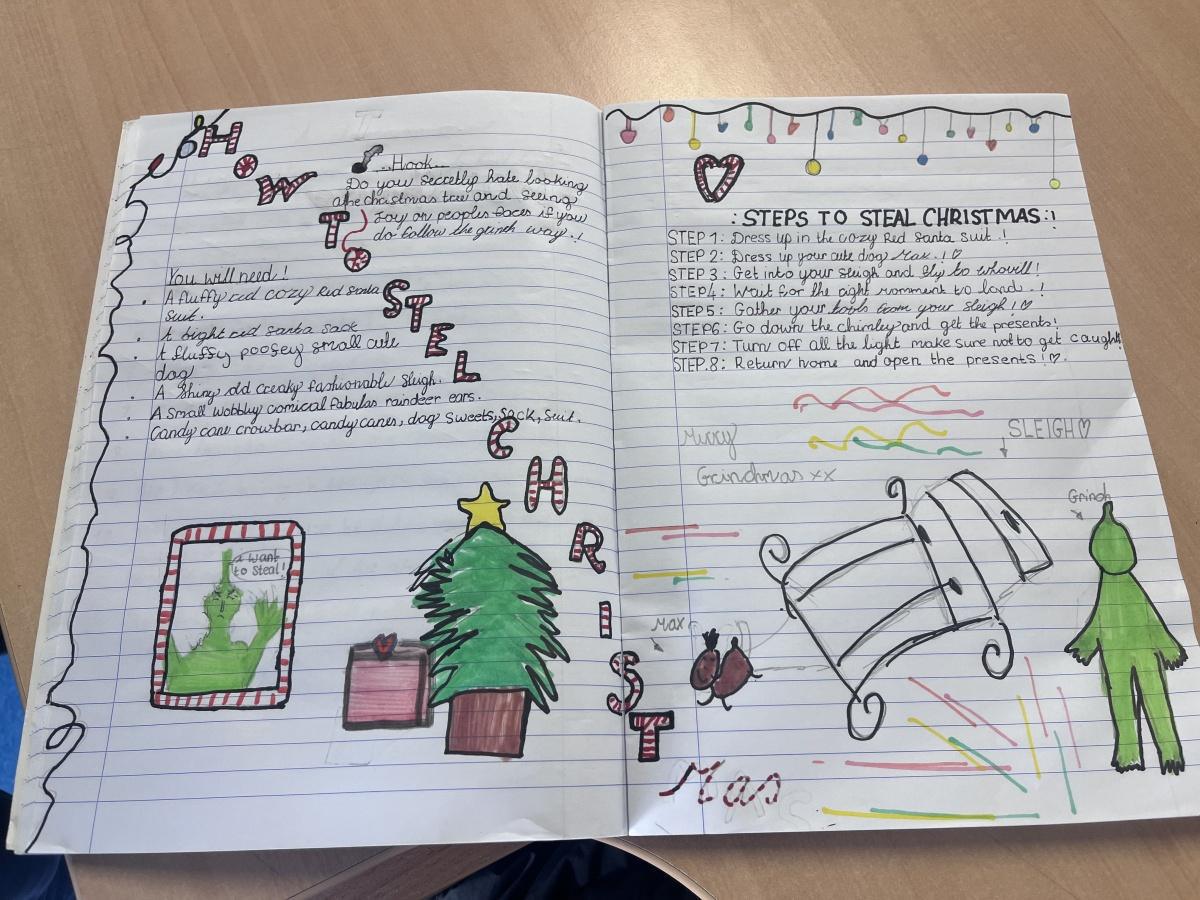 HOW
TO
STEL
CHRIST
Mas
..Hook...
Do you secretly hate looking
at the christmas tree and seeing
Joy on peoples faces if you
do follow the grinch way.!
You will need!
• A fluffy red cozy Red santa
suit.
• A bight red santa sack
• A fluffy poofey small cute
dog
• A shiny old creaky fashionable sleigh.
• A small wobbly comical fabulas raindeer ears.
• Candy cane crowbar, candy canes, dog sweets, sack, suit.
I want
to steal!
:STEPS TO STEAL CHRISTMAS:!
STEP 1: Dress up in the cozy Red Santa suit.!
STEP 2: Dress up your cute dog Max.!♡
STEP 3: Get into your sleigh and fly to whovill!
STEP4: Wait for the right momment to land.!
STEP5: Gather your tools from your sleigh!♡
STEP6: Go down the chimley and get the presents!
STEP7: Turn off all the light make sure not to get caught!
STEP.8: Return home and open the presents!♡.
Merry
Grinchmas xx
SLEIGH♡
Grinch
Max